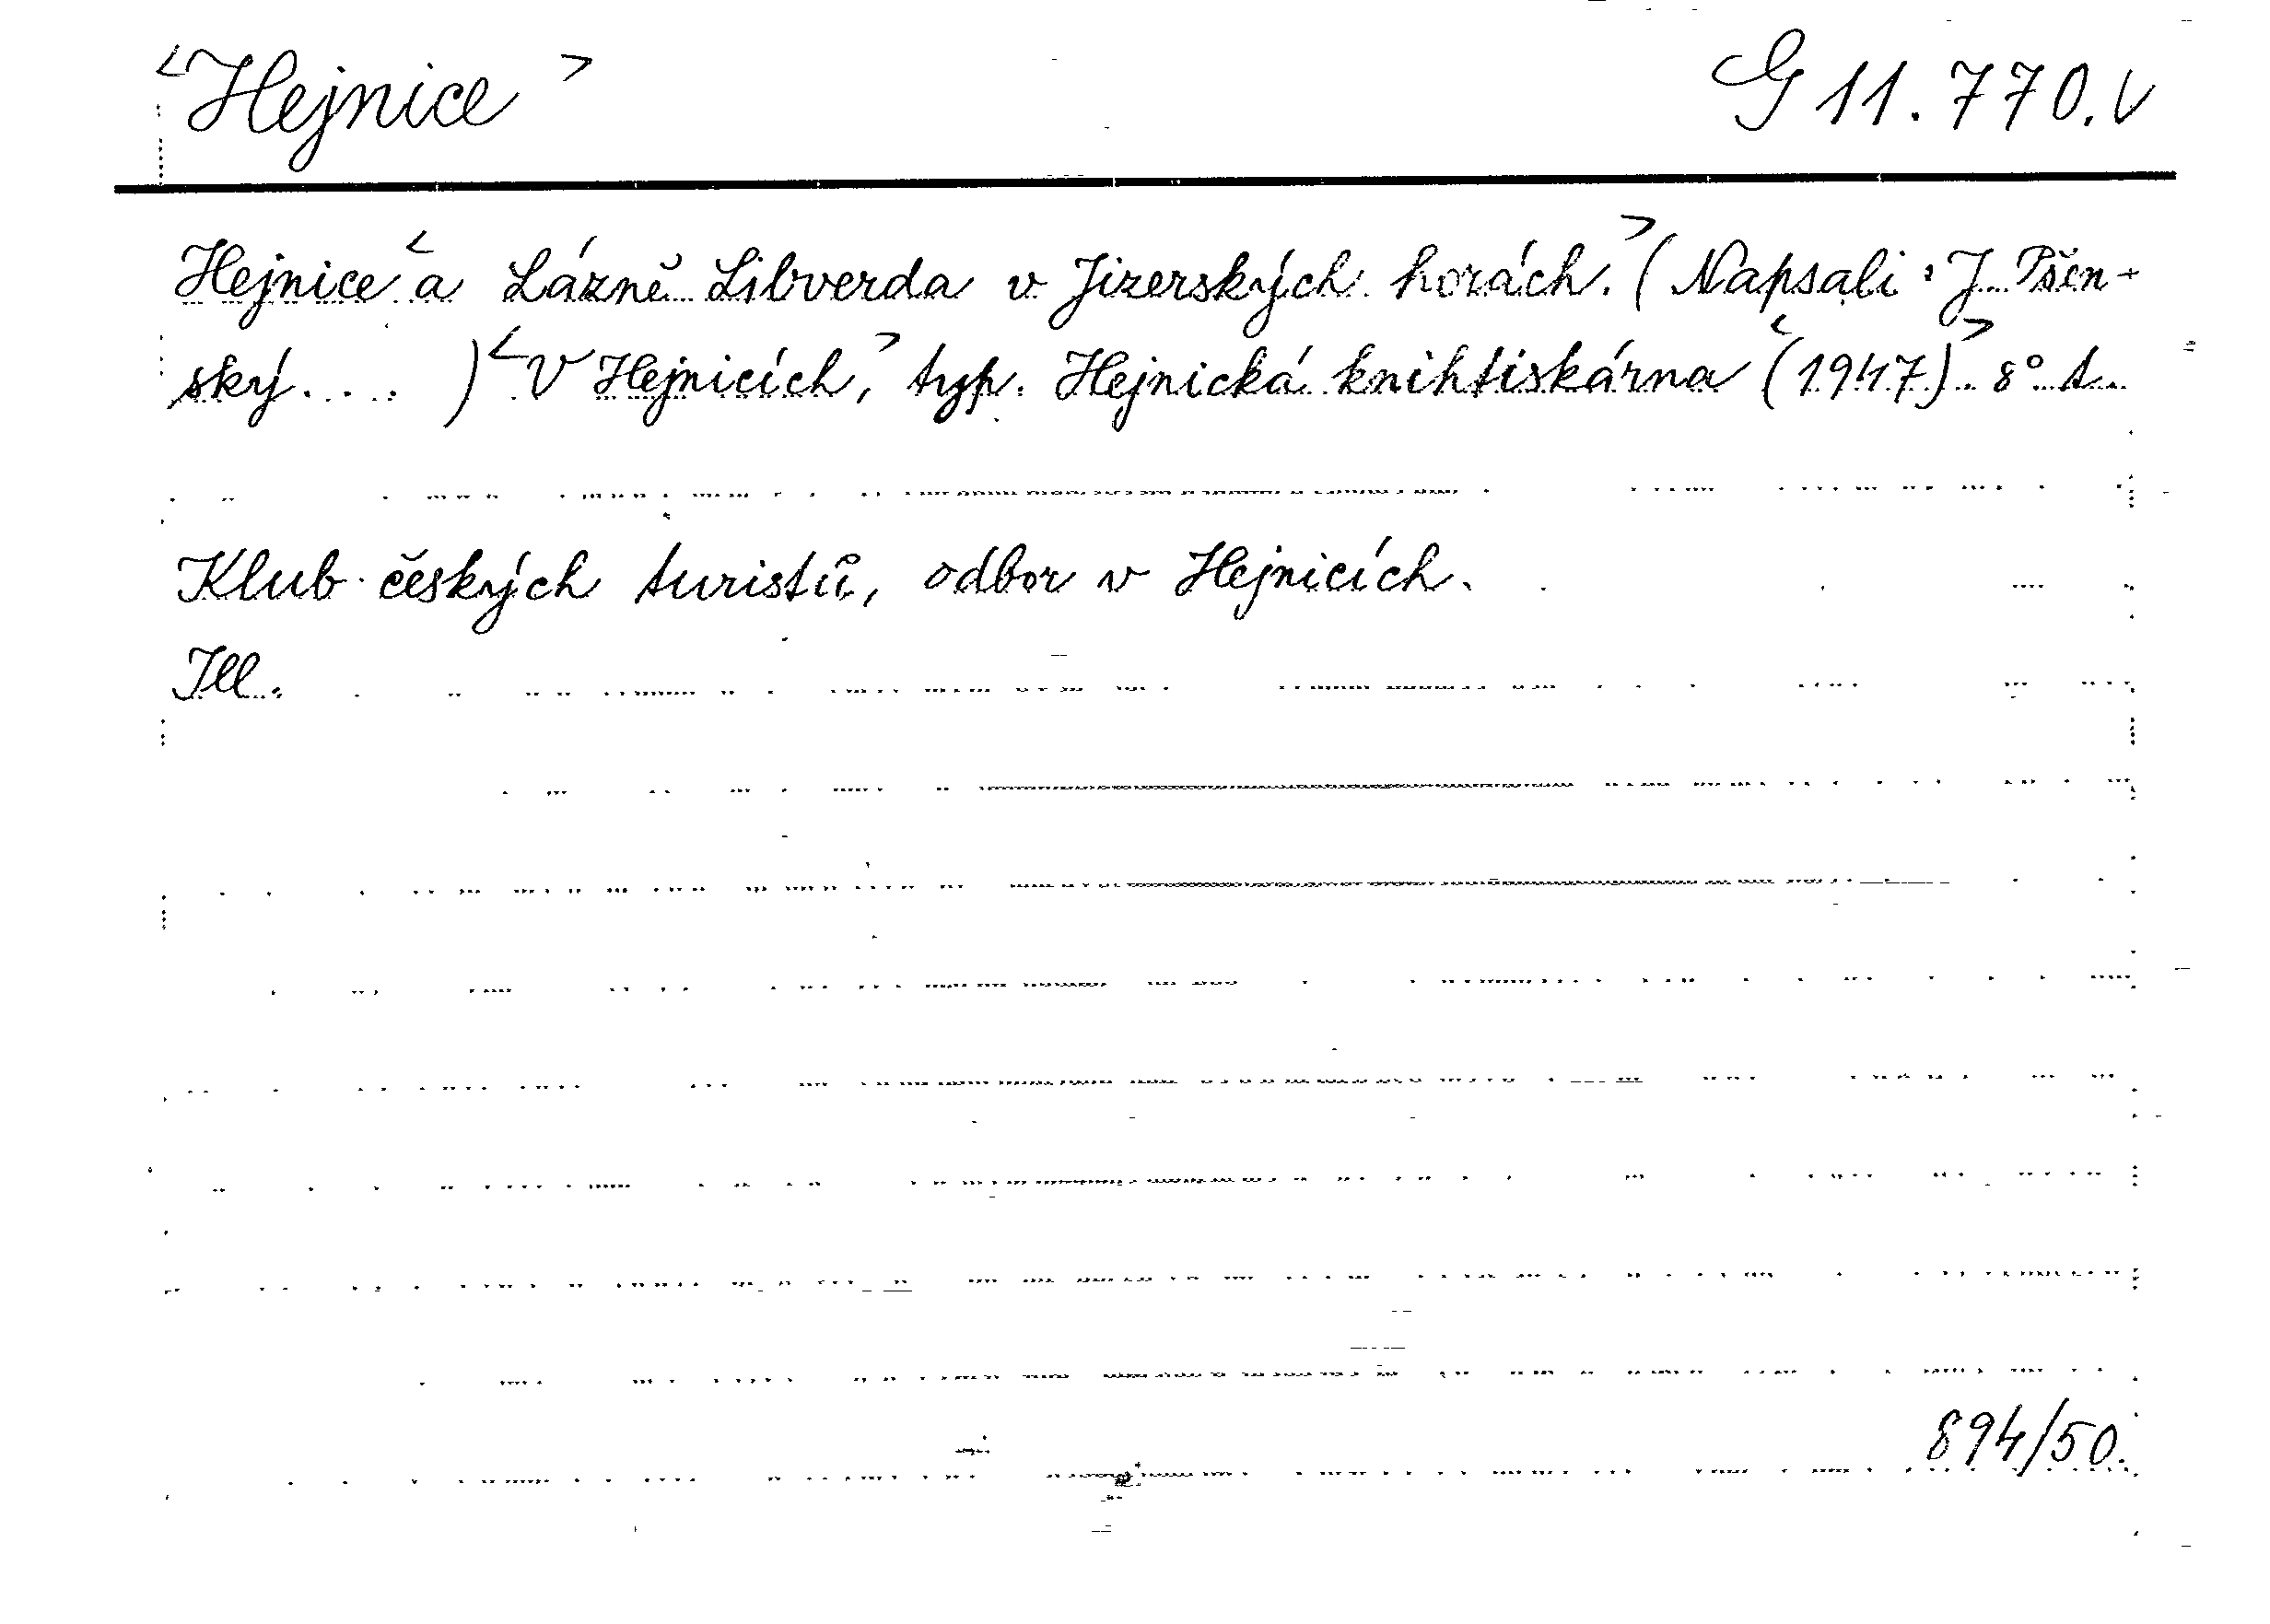 <Hejnice> G 11.770.V
Hejnice <a Lázně Libverda v Jizerských horách.> (Napsali: J. Pšen-
ský .... ) <V Hejnicích,> typ. Hejnická knihtiskárna <(1947)> 8° t.
Klub českých turistů, odbor v Hejnicích.
Ill.
894/50.